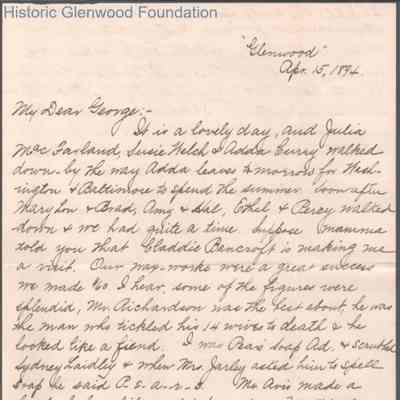 Historic Glenwood Foundation
"Glenwood"
Apr. 15, 1894.
My Dear George:-
It is a lovely day, and Julia
McFarland, Susie Welch & Adda Curry walked
down by the way Adda leaves to morrow for Wash-
ington & Baltimore to spend the summer. soon after
Marylou & Brad, Amy & Hal, Ethel & Percy walked
down & we had quite a time. Supose mamma
told you that Claddie Bencroft is making me
a visit. Our wax-works were a great success
we made $60 I hear, some of the figures were
splendid, Mr. Richardson was the best about, he was
the man who tickled his 14 wives to death & he
looked like a fiend. I was Pears' soap Ad. & scrubbed
Sydney Laidley & when Mrs. Jarley asked him to spell
soap he said P. E. A. R. S. Mr Avis made a